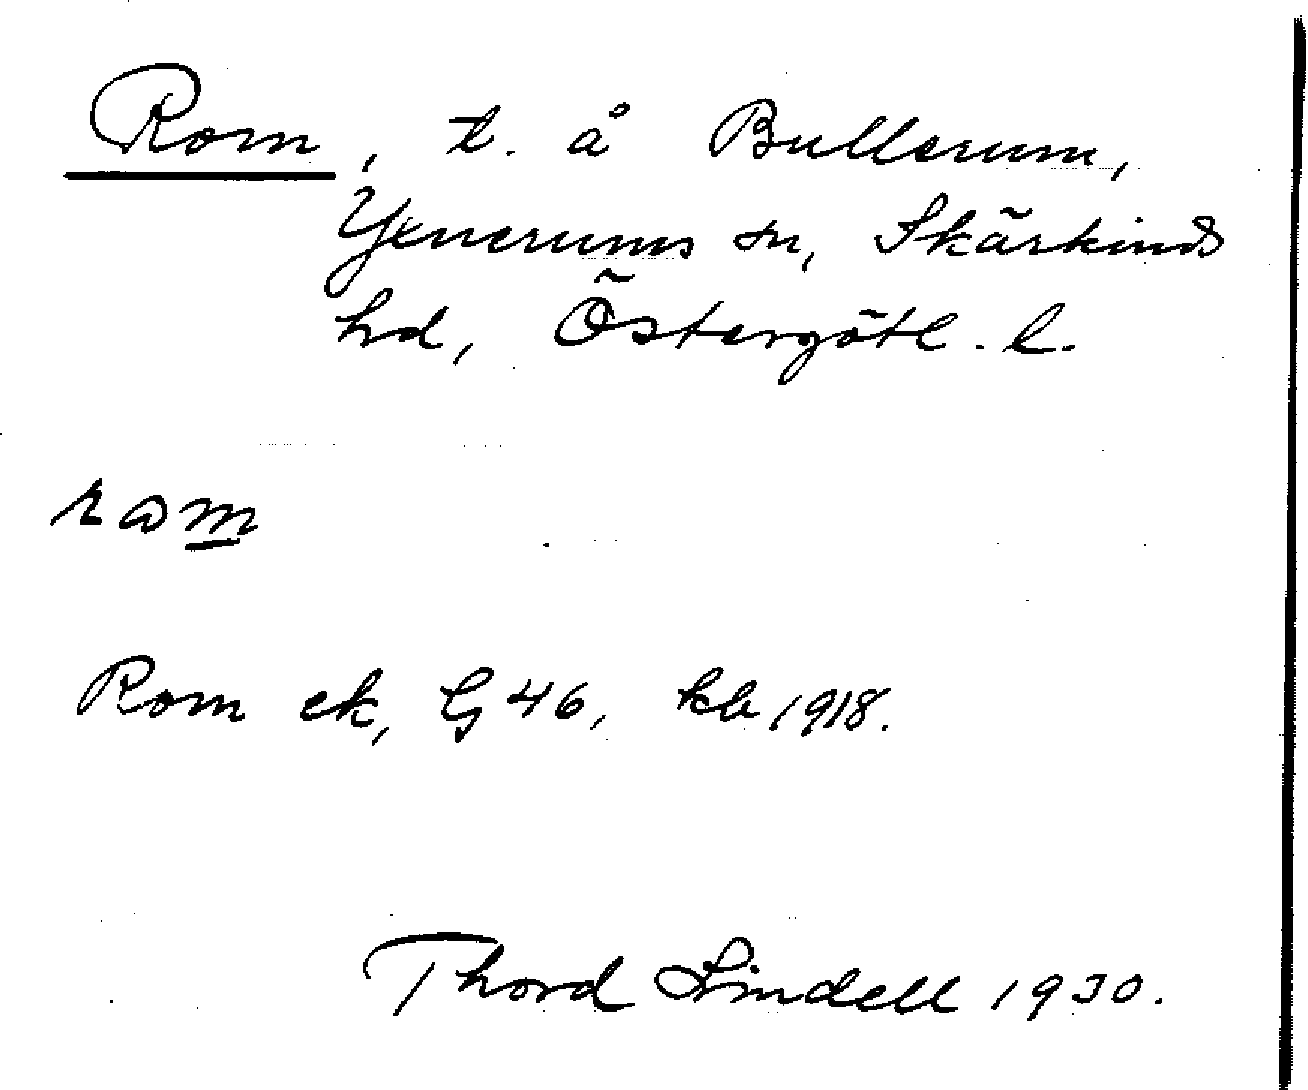 Rom, t. å Bullerum,
Yxnerums sn, Skärkinds
hd, Östergötl. l.
ram
Rom ek, G 46, kb 1918.
Thord Lindell 1930.